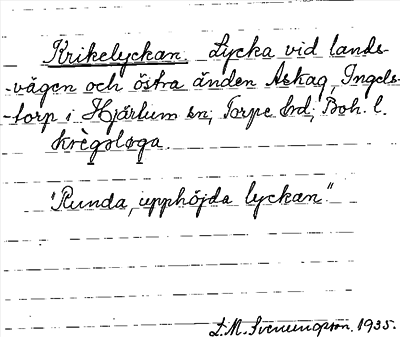 Krikelyckan. Lycka vid lands-
-vägen och östra änden Askag, Ingels-
-torp i Hjärtum sn; Torpe hrd; Boh. l.
krègsløga.
"Runda, upphöjda lyckan"
L.M. Svenungsson. 1935.